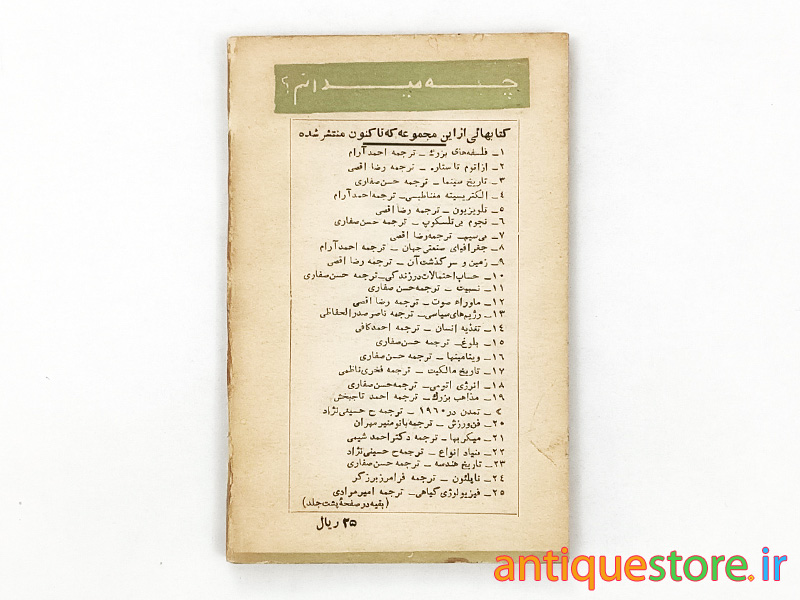 چه میدانم؟
کتابهائی از این مجموعه که تاکنون منتشر شده
۱ـ فلسفه‌های بزرگ ـ ترجمه احمد آرام
۲ـ از اتوم تا ستاره ـ ترجمه رضا اقصی
۳ـ تاریخ سینما ـ ترجمه حسن صفاری
۴ـ الکتریسیته مغناطیس ـ ترجمه احمد آرام
۵ـ تلویزیون ـ ترجمه رضا اقصی
۶ـ نجوم بی‌تلسکوپ ـ ترجمه حسن صفاری
۷ـ بی‌سیم ـ ترجمه رضا اقصی
۸ـ جغرافیای صنعتی جهان ـ ترجمه احمد آرام
۹ـ زمین و سرگذشت آن ـ ترجمه رضا اقصی
۱۰ـ حساب احتمالات در زندگی ـ ترجمه حسن صفاری
۱۱ـ نسبیت ـ ترجمه حسن صفاری
۱۲ـ ماوراء صوت ـ ترجمه رضا اقصی
۱۳ـ رژیم‌های سیاسی ـ ترجمه ناصر صدرالحفاظی
۱۴ـ تغذیه انسان ـ ترجمه احمد کافی
۱۵ـ بلوغ ـ ترجمه حسن صفاری
۱۶ـ ویتامینها ـ ترجمه حسن صفاری
۱۷ـ تاریخ مالکیت ـ ترجمه فخری ناظمی
۱۸ـ انرژی اتومی ـ ترجمه حسن صفاری
۱۹ـ مذاهب بزرگ ـ ترجمه احمد تاجبخش
ـ تمدن در ۱۹۶۰ ـ ترجمه ح حسینی نژاد
۲۰ـ فن ورزش ـ ترجمه بانو منیر مهران
۲۱ـ میکربها ـ ترجمه دکتر احمد شیمی
۲۲ـ بنیاد انواع ـ ترجمه ح حسینی نژاد
۲۳ـ تاریخ هندسه ـ ترجمه حسن صفاری
۲۴ـ ناپلئون ـ ترجمه فرامرز برزگر
۲۵ـ فیزیولوژی گیاهی ـ ترجمه امیر مرادی
(بقیه در صفحهٔ پشت جلد)
۲۵ ریال
antiquestore.ir